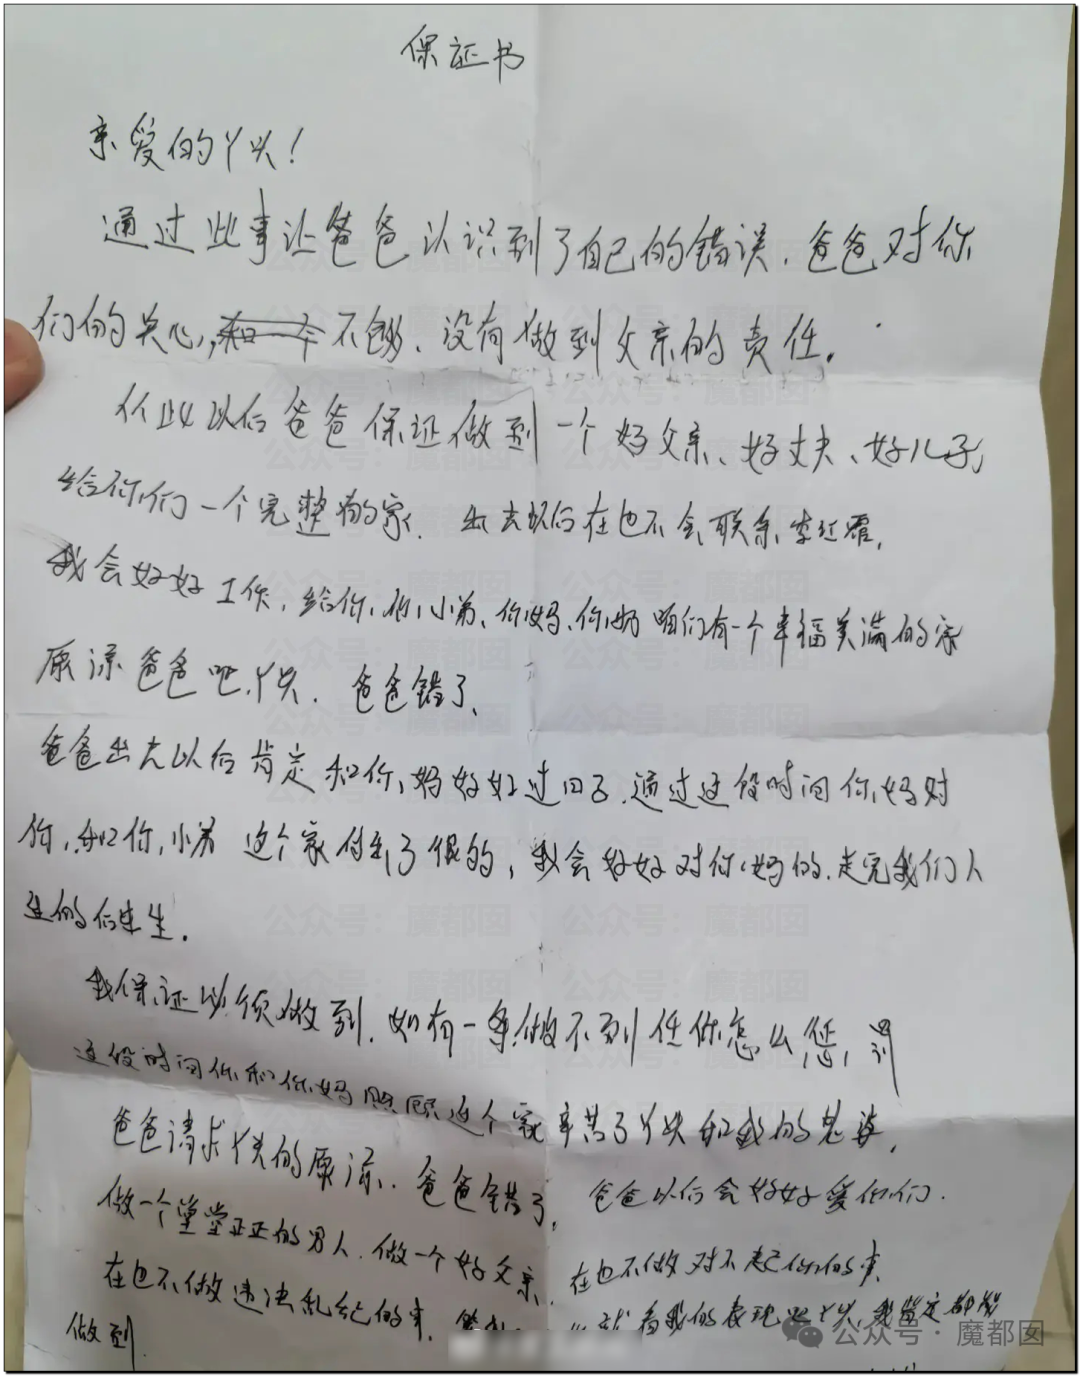 保证书
亲爱的丫头！
通过此事让爸爸认识到了自己的错误．爸爸对你
们的关心，不够、没有做到父亲的责任．
从此以后爸爸保证做到一个好父亲、好丈夫、好儿子，
给你们一个完整的家．出去以后在也不会联系李红霞，
我会好好工作，给你，和小弟、你妈、你奶咱们有一个幸福美满的家
原谅爸爸吧，丫头．爸爸错了、
爸爸出去以后肯定和你妈好好过日子．通过这段时间你妈对
你，和你小弟这个家付出了很的，我会好好对你妈的．走完我们人
生的后半生．
我保证必须做到．如有一条做不到任你怎么惩罚
这段时间你和你妈照顾这个家辛苦了丫头和我的老婆，
爸爸请求丫头的原谅．爸爸错了，爸爸以后会好好爱你们．
做一个堂堂正正的男人．做一个好父亲．在也不做对不起你们的事．
在也不做违法乱纪的事．就看我的表现吧丫头，我肯定都能
做到
公众号·魔都囡